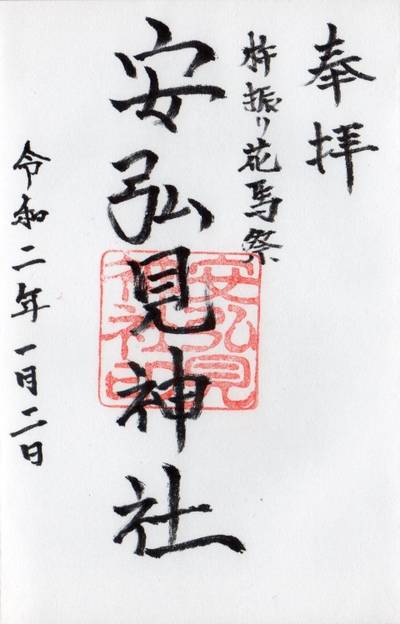 奉拝
杵振り花馬祭
安弘見神社
安弘見
神社印
令和二年一月二日